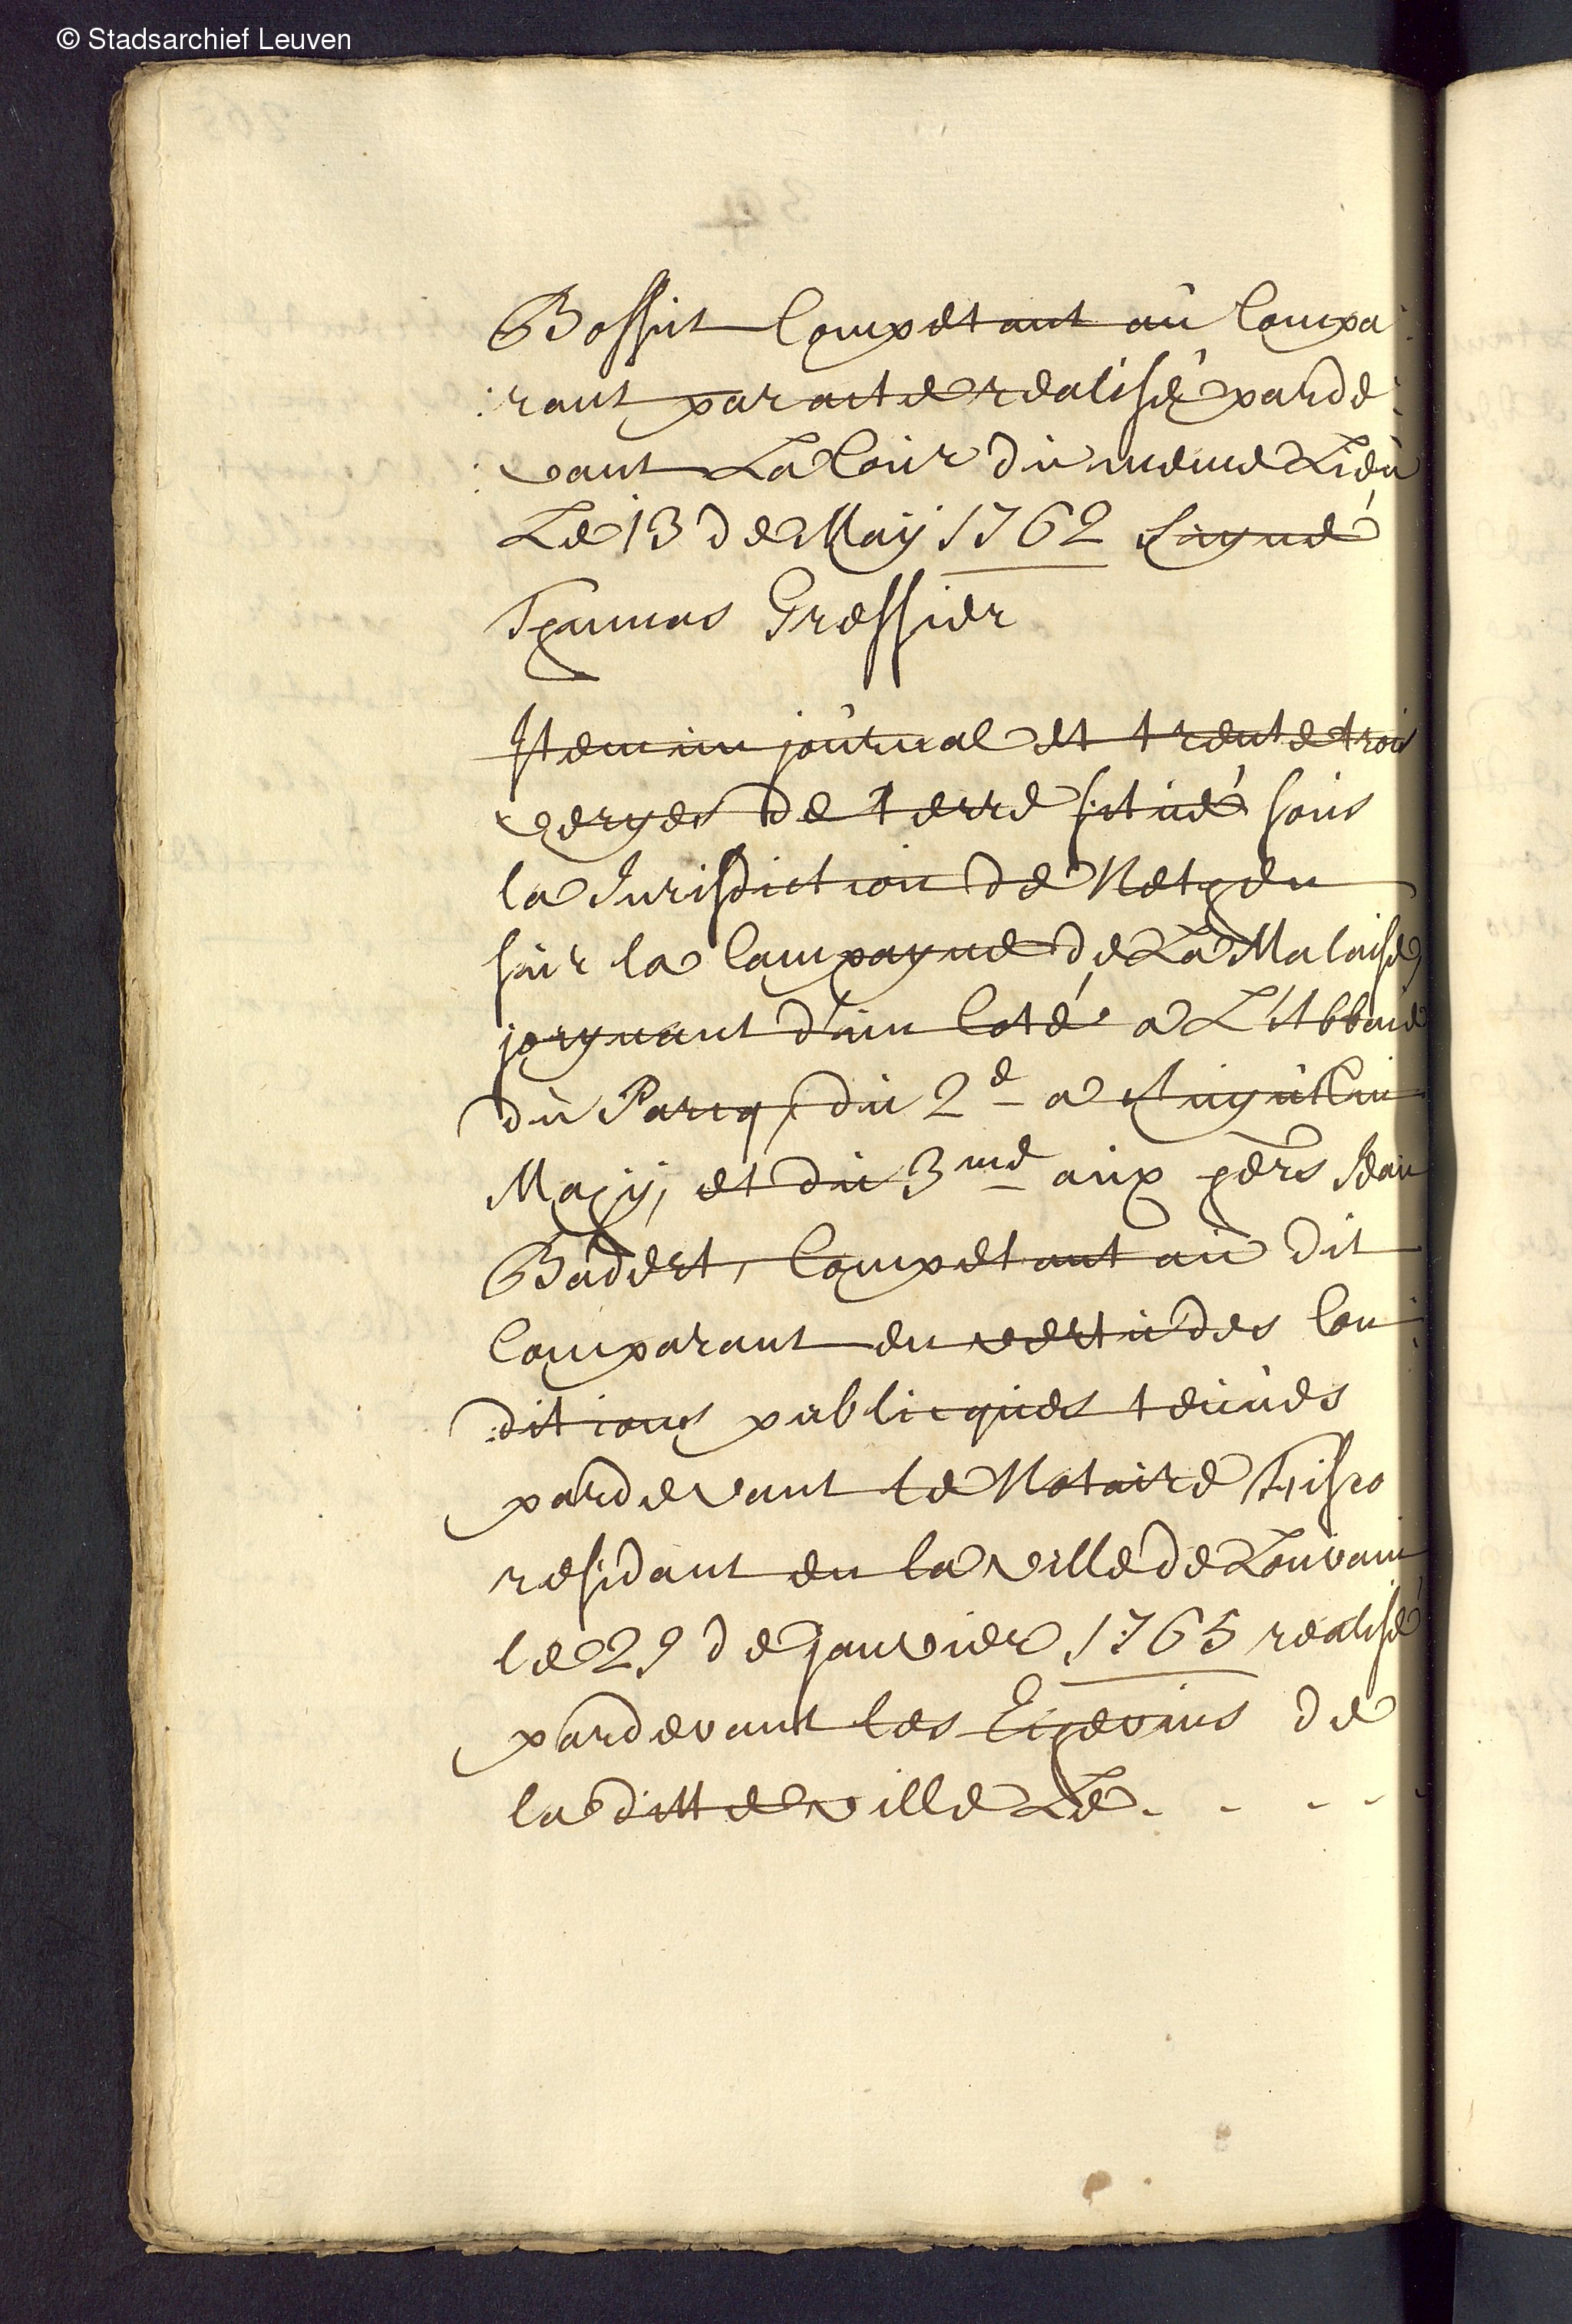 © Stadsarchief Leuven
Bossut Competant au Compa:
:rant par acte realisé parde:
:vant La Cour du meme Lieu
Le 13 de Maÿ 1762 signé
Greffier
Item un journal et trente trois
verges de terre situé sous
la Jurisdiction de Nethen
sur la Campagne de La Malaise,
joignant d'un Coté a L'Abbaie
du Parcq, du 2e a
et du 3me aux hers Jean
Badert, Competant au dit
Comparant en vertu des Con:
:ditions publicques tenues
pardevant le Notaire
residant en la ville de Louvain
le 29 de Janvier 1765 realisé
pardevant les Echevins de
la ditte ville Le - - - -